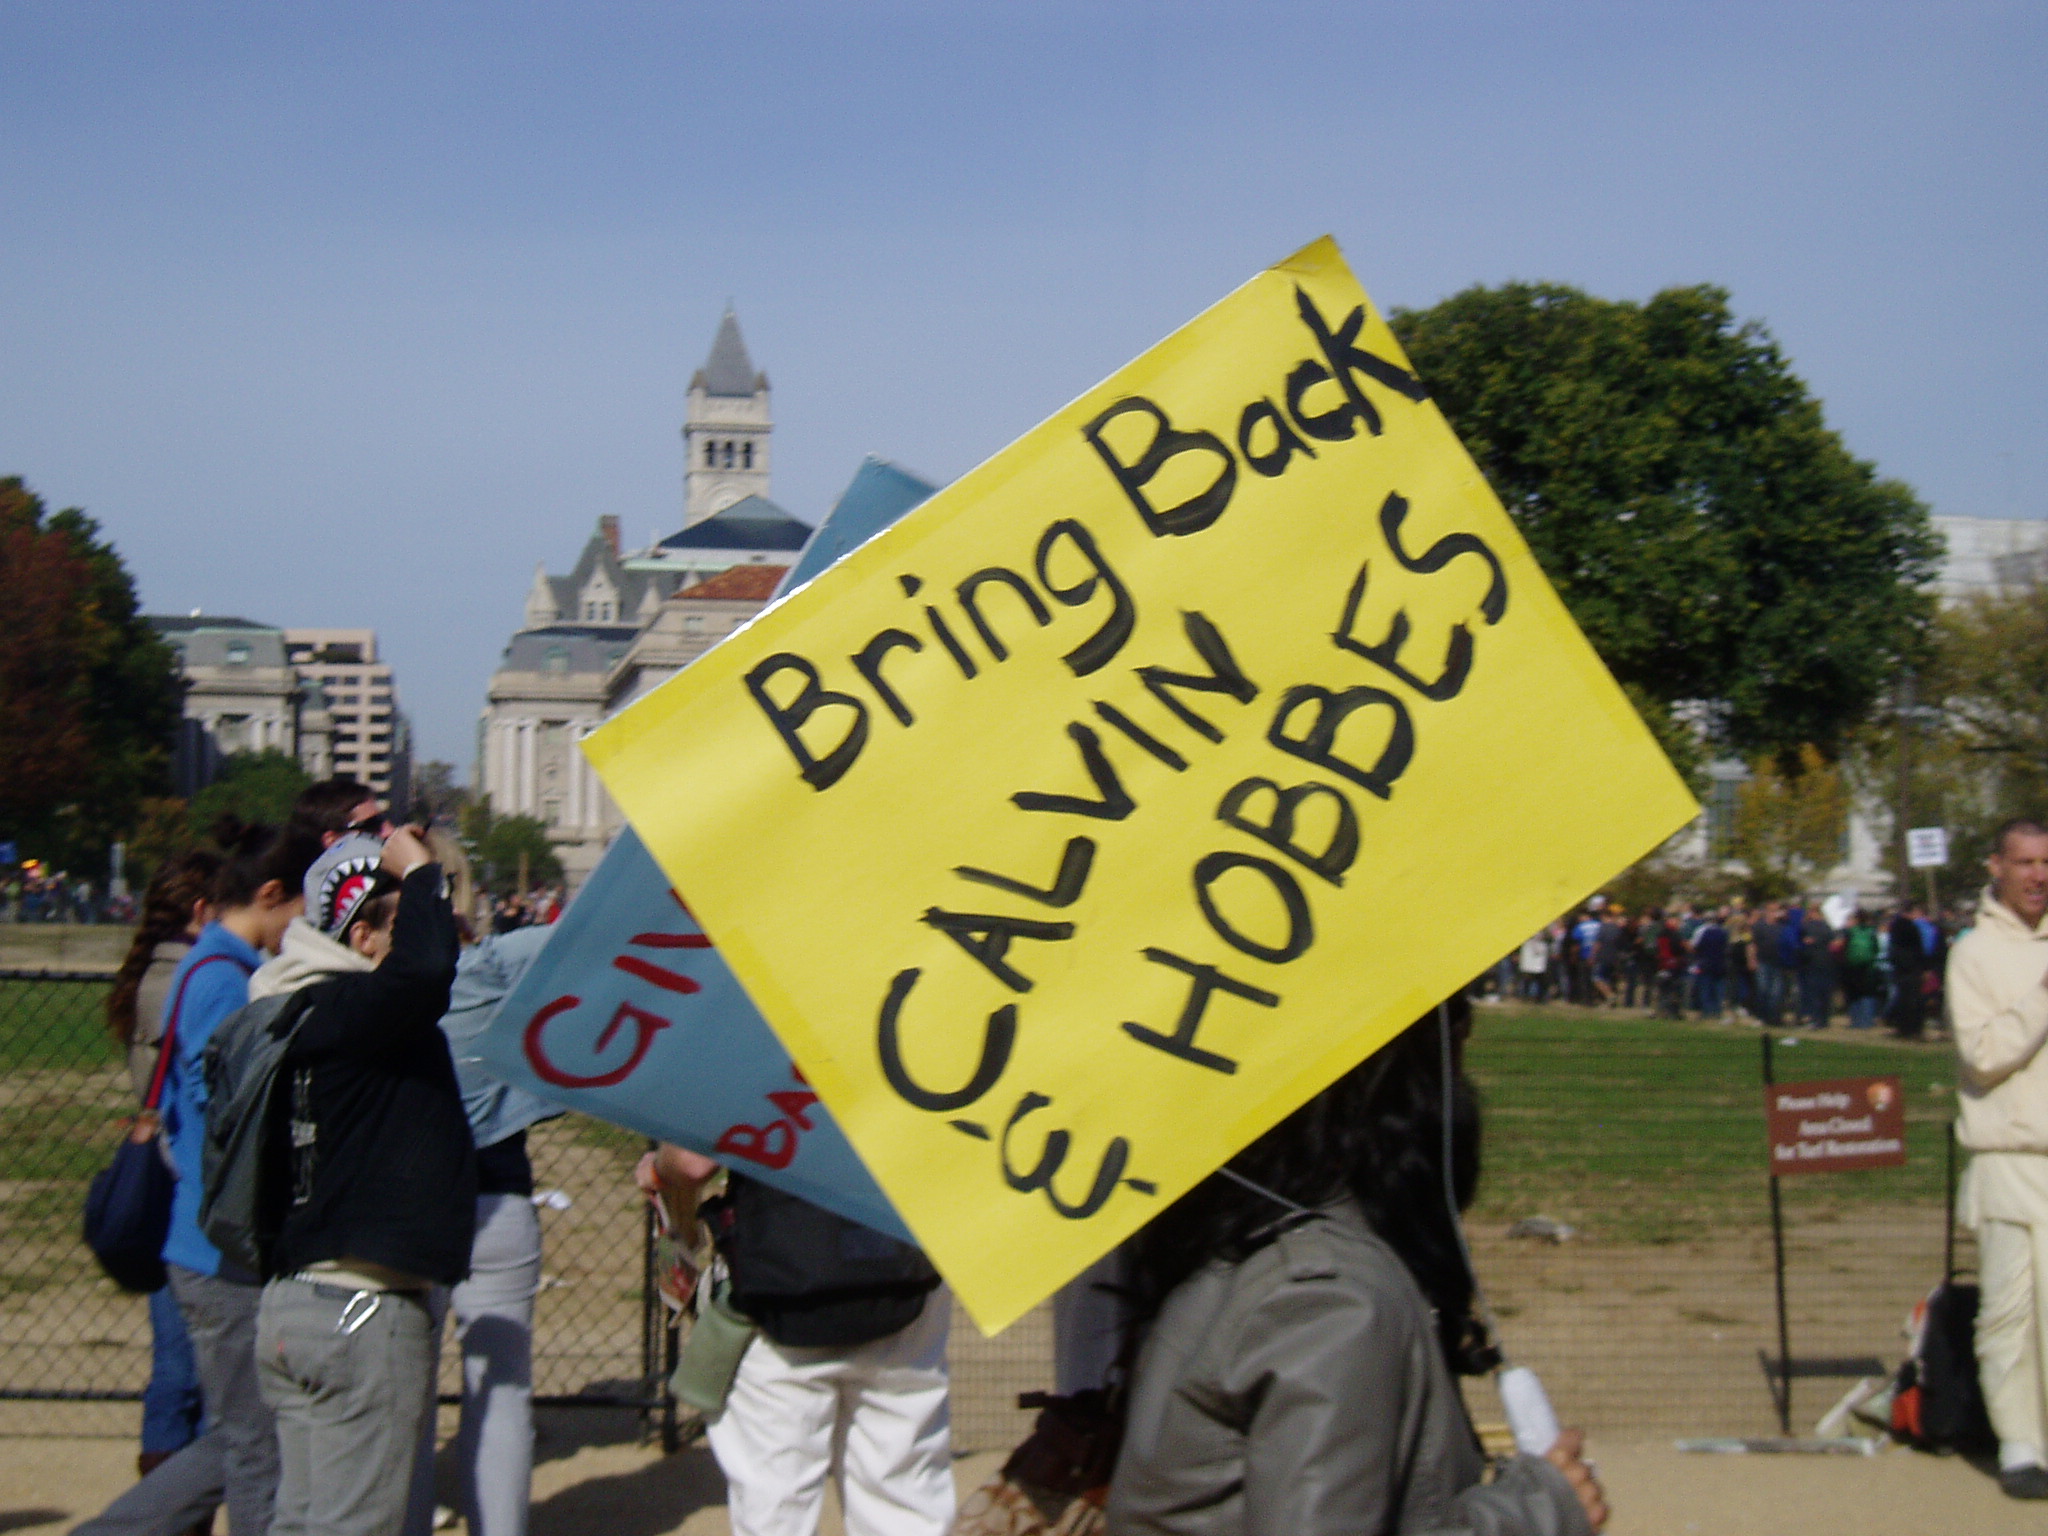 Bring Back
CALVIN
& HOBBES
GIV
BA
Please Help
Area Closed
for Turf Restoration